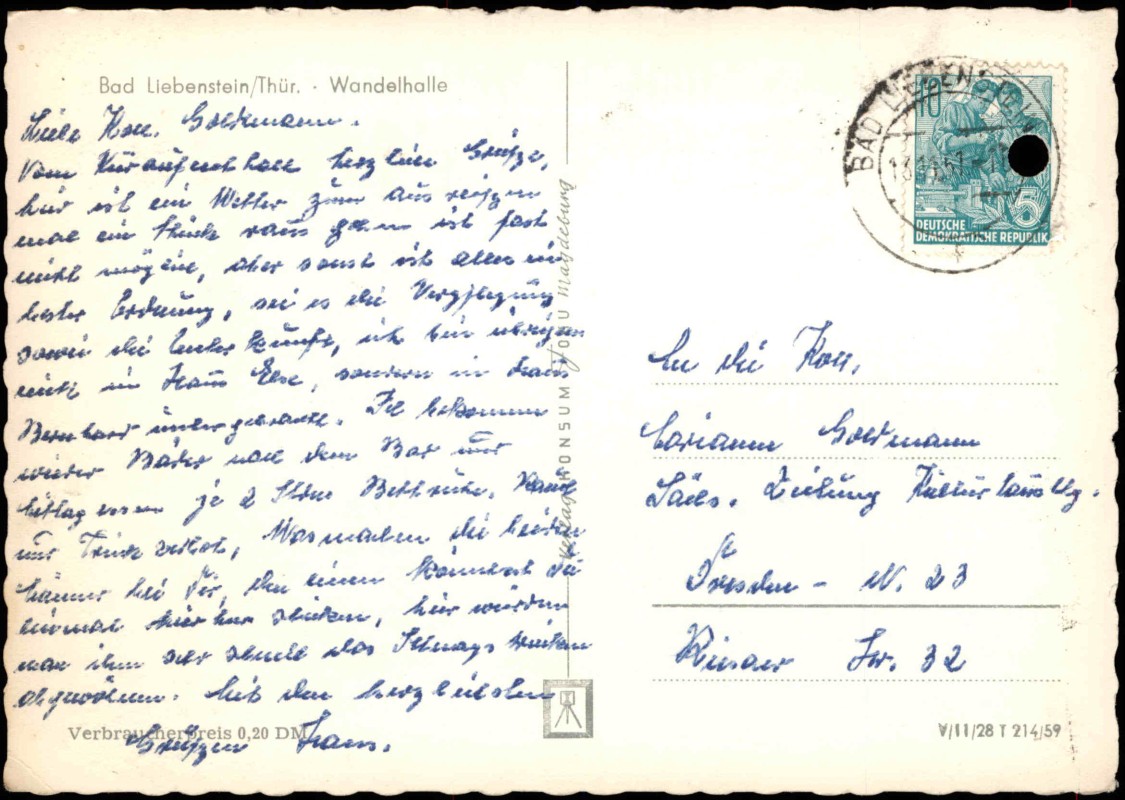 Bad Liebenstein/Thür. · Wandelhalle
Liebe Koll. Goldmann.
Vom Kuraufenthalt herzlich Grüße,
hier ist ein Wetter zum aus reißen
mal ein Stück raus gehen ist fast
nicht möglich, aber sonst ist alles in
bester Ordnung, sei es die Verpflegung
sowie die Unterkünfte, ich bin übrigens
nicht in Haus Else, sondern in Haus
Bernhard untergebracht. Ich bekomme
wieder Bäder nach dem Bad und
Mittagessen je 2 Stdn Bettruhe.
und verbot, Was machen die beiden
Männer bei Dir, den einen könntest Du
einmal hier her schicken, hier würden
man ihm sehr schnell das trinken
abgewöhnen. Mit den herzlichsten
Grüßen Hans.
Verbraucherpreis 0,20 DM
Verlag KONSUM FOTO Magdeburg
BAD LIEBENST
13.11.5
10
5
DEUTSCHE
DEMOKRATISCHE REPUBLIK
An die Koll.
Marianne Goldmann
Sächs. Zeitung
Dresden - N. 23
Riesaer Str. 32
V/11/28 T 214/59